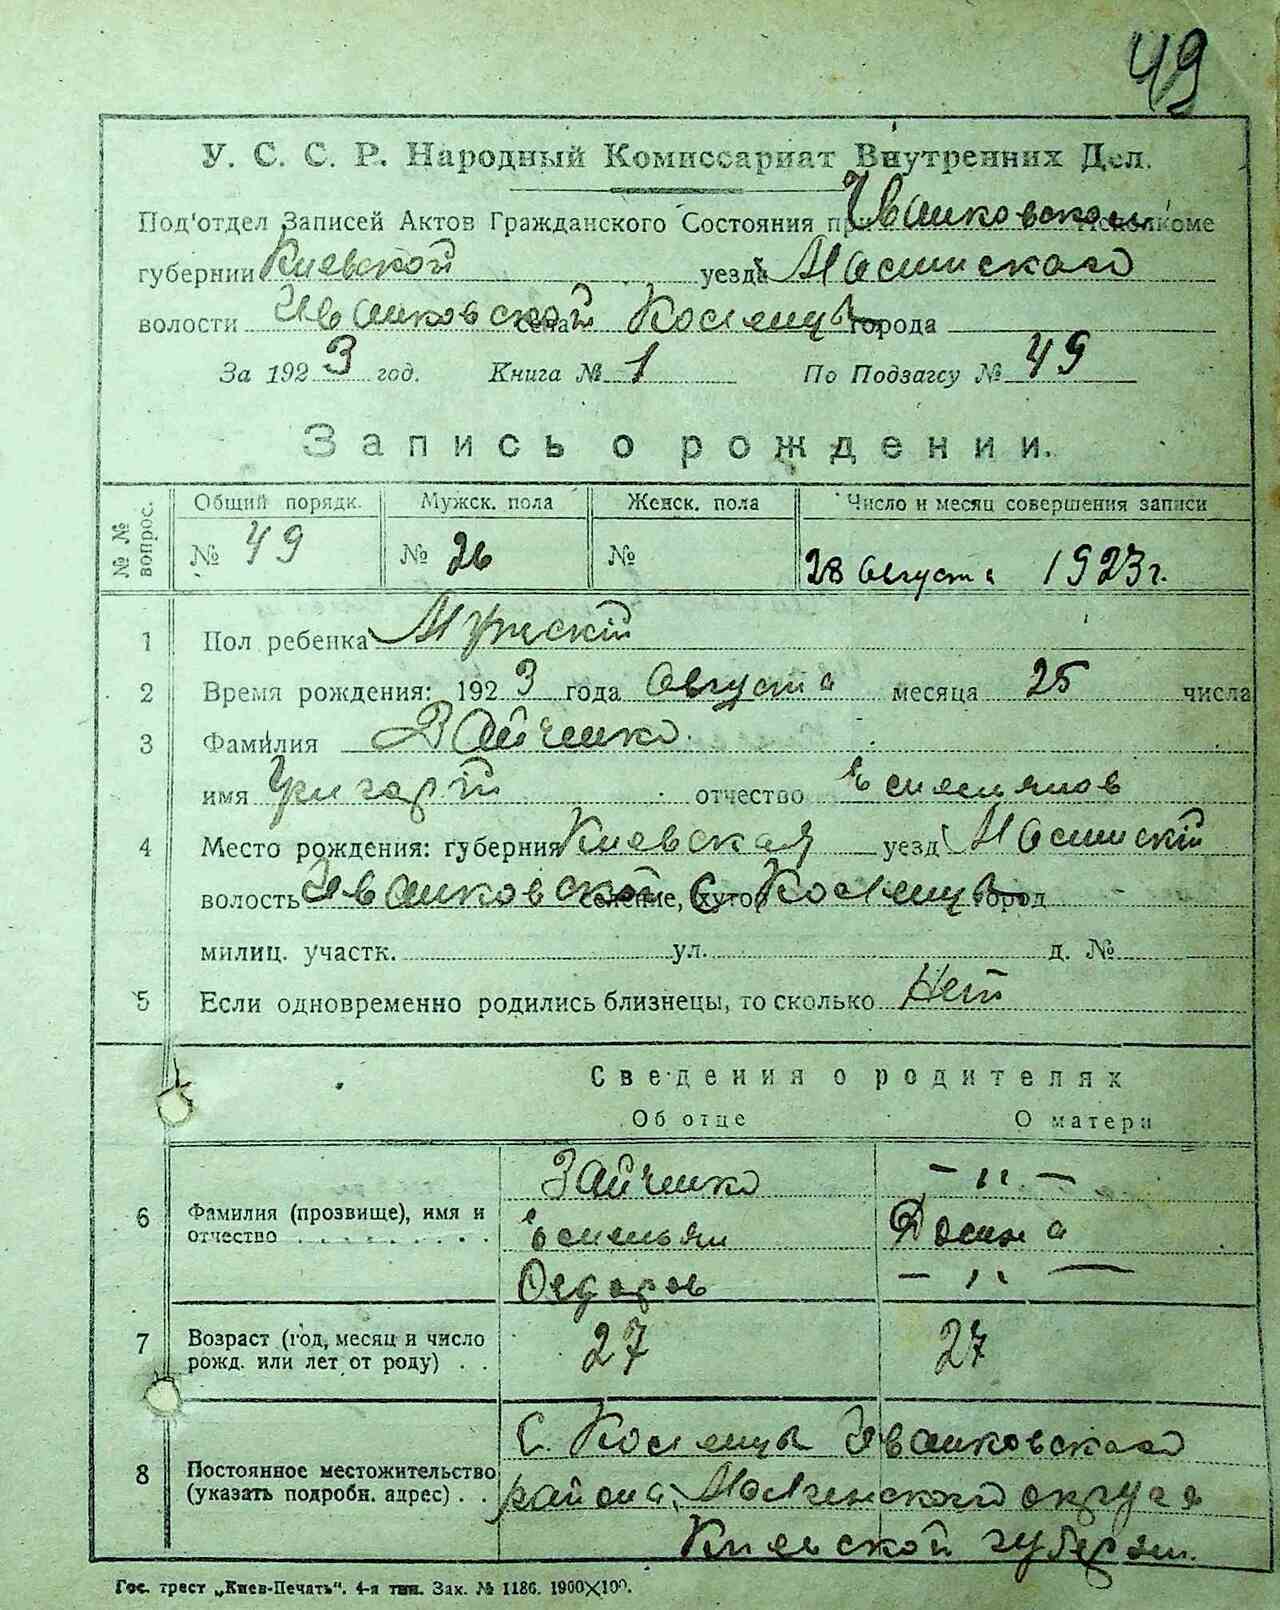 49
У. С. С. Р. Народный Комиссариат Внутренних Дел.
Под'отдел Записей Актов Гражданского Состояния при Иванковском Исполкоме
губернии Киевской уезда
волости Иванковской села города
За 1923 год. Книга № 1 По Подзагсу № 49
Запись о рождении.
№ № вопрос. Общий порядк. Мужск. пола Женск. пола Число и месяц совершения записи
№ 49 № 26 № 28 Августа 1923 г.
1 Пол ребенка Мужскій
2 Время рождения: 1923 года Августа месяца 25 числа
3 Фамилия Зайченко
имя Григорій отчество Емельянов
4 Место рождения: губерния Киевская уезд
волость Иванковской селение, хутор город
милиц. участк. ул. д. №
5 Если одновременно родились близнецы, то сколько Нет
Сведения о родителях
Об отце О матери
Зайченко — ,, —
6 Фамилия (прозвище), имя и отчество . . . . . . . . . Емельян
Федоров — ,, —
7 Возраст (год, месяц и число рожд. или лет от роду) . . 27 27
С. Иванковского
8 Постоянное местожительство (указать подробн. адрес) . . района, округа
Киевской губернии.
Гос. трест „Киев-Печать". 4-я тип. Зак. № 1186. 1900×100.